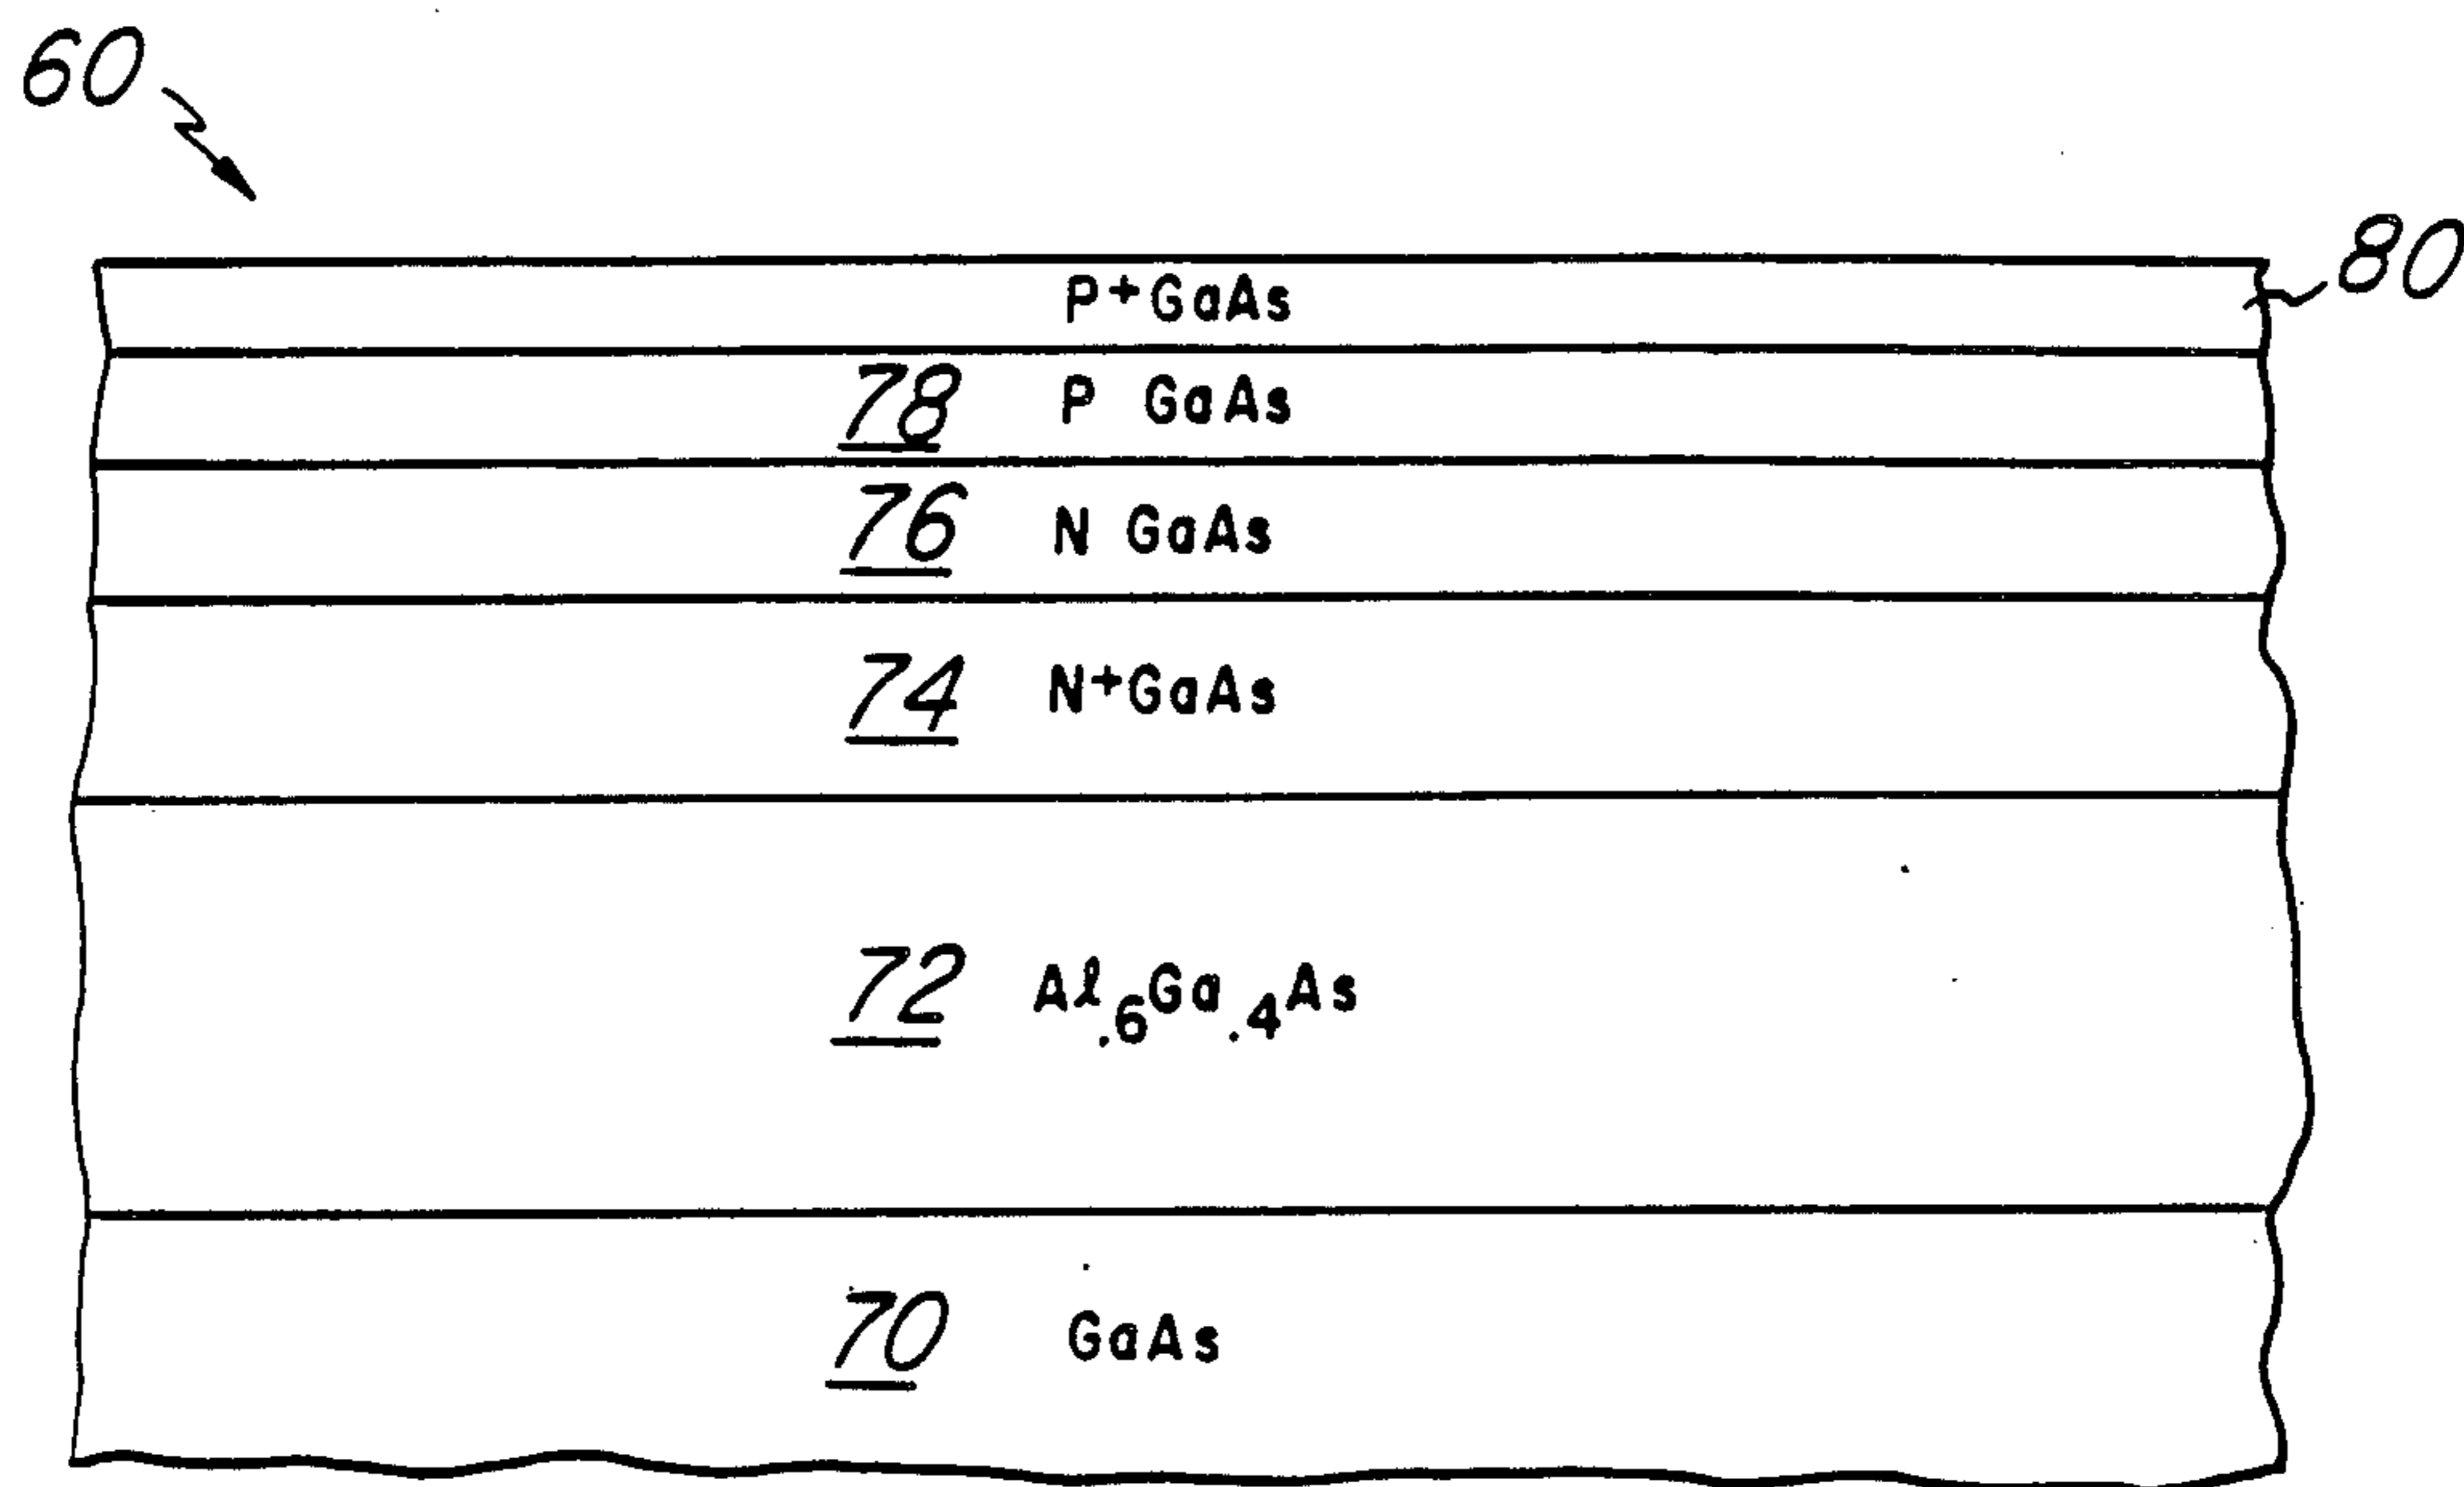 60
P+GaAs
80
78 P GaAs
76 N GaAs
74 N+GaAs
72 Al.6Ga.4As
70 GaAs